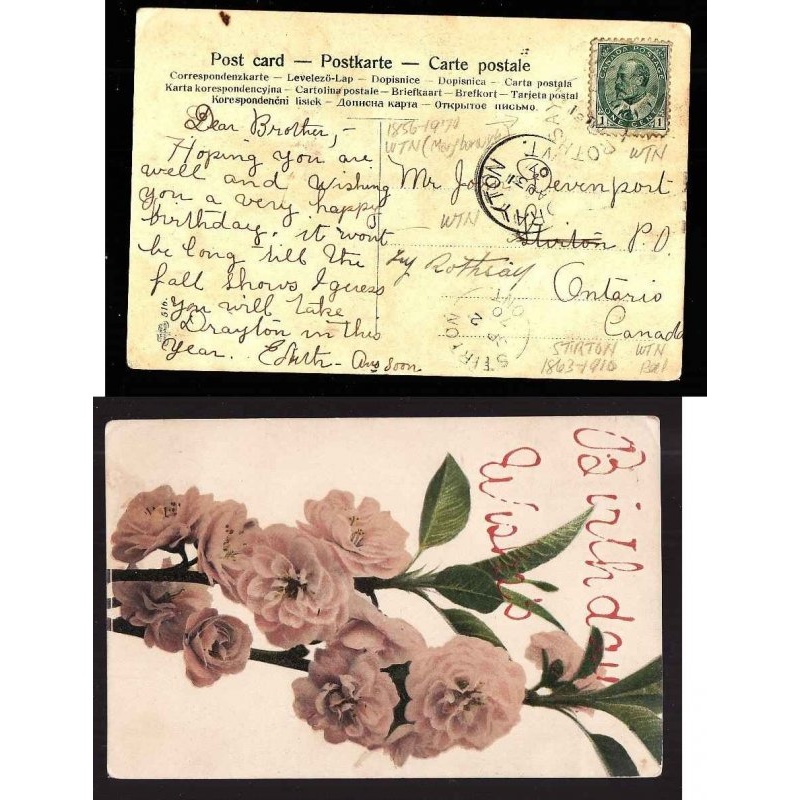 Post card — Postkarte — Carte postale
Correspondenzkarte — Levelező-Lap — Dopisnice — Dopisnica — Carta postala
Karta korespondencyjna — Cartolina postale — Briefkaart — Brefkort — Tarjeta postal
Korespondenční listek — Дописна карта — Открытое письмо.
CANADA POSTAGE
1 ONE CENT 1
Dear Brother,-
Hoping you are
well and wishing
you a very happy
birthday. it wont
be long till the
fall shows I guess
You will take
Drayton in this
year. Edith - Ans soon.
516.
1856-1970
WTN
WTN
WTN
ROTHSAY
DRAYTON
AU 31
07
Mr Devenport
Stirton P.O.
Rothsay
Ontario
Canada
STIRTON
ONT
STIRTON WTN
1863-1910
Birthday
Wishes